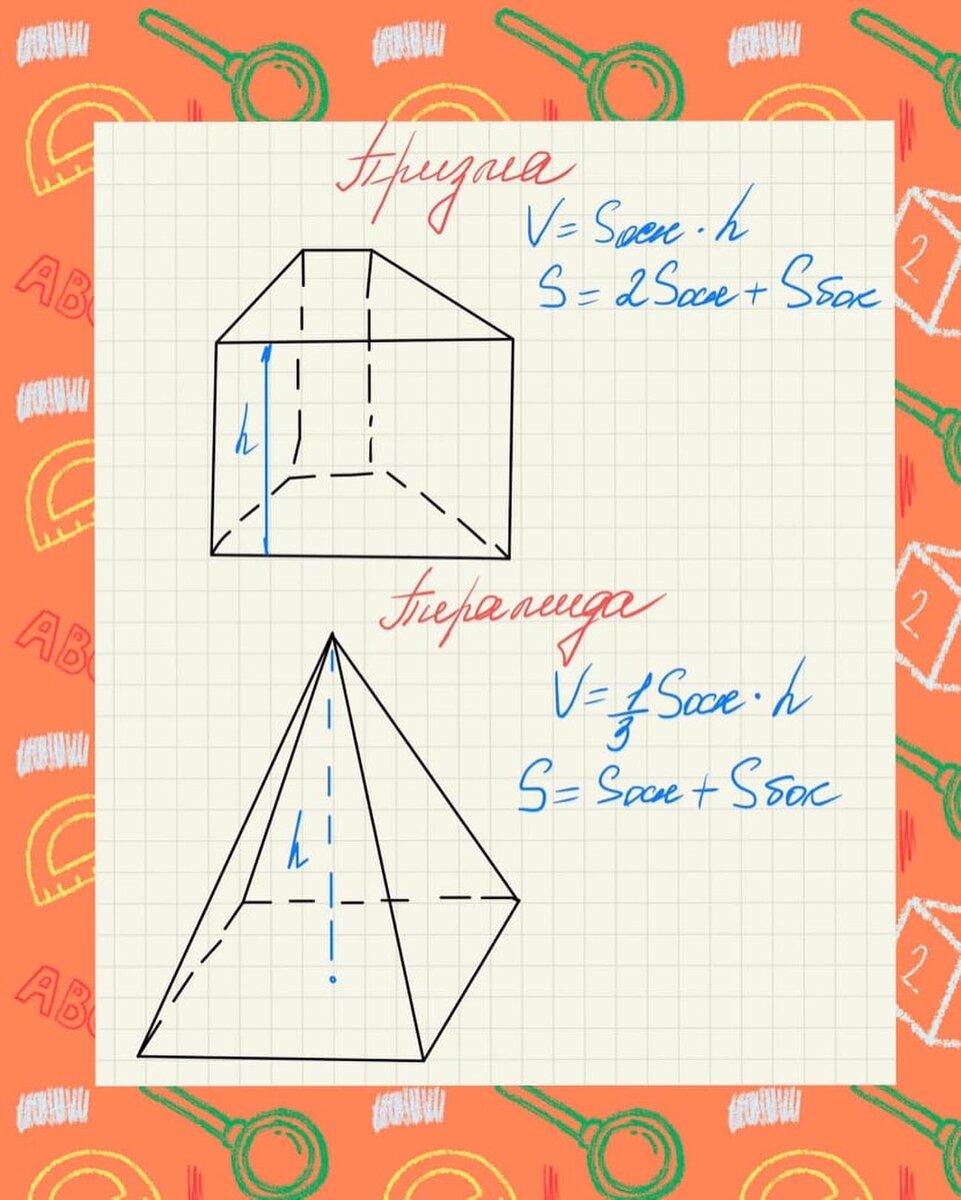 Призма
V = Sосн · h
S = 2Sосн + Sбок
h
Пирамида
V = 1/3 Sосн · h
S = Sосн + Sбок
h
ABC
ABC
ABC
2
2
2